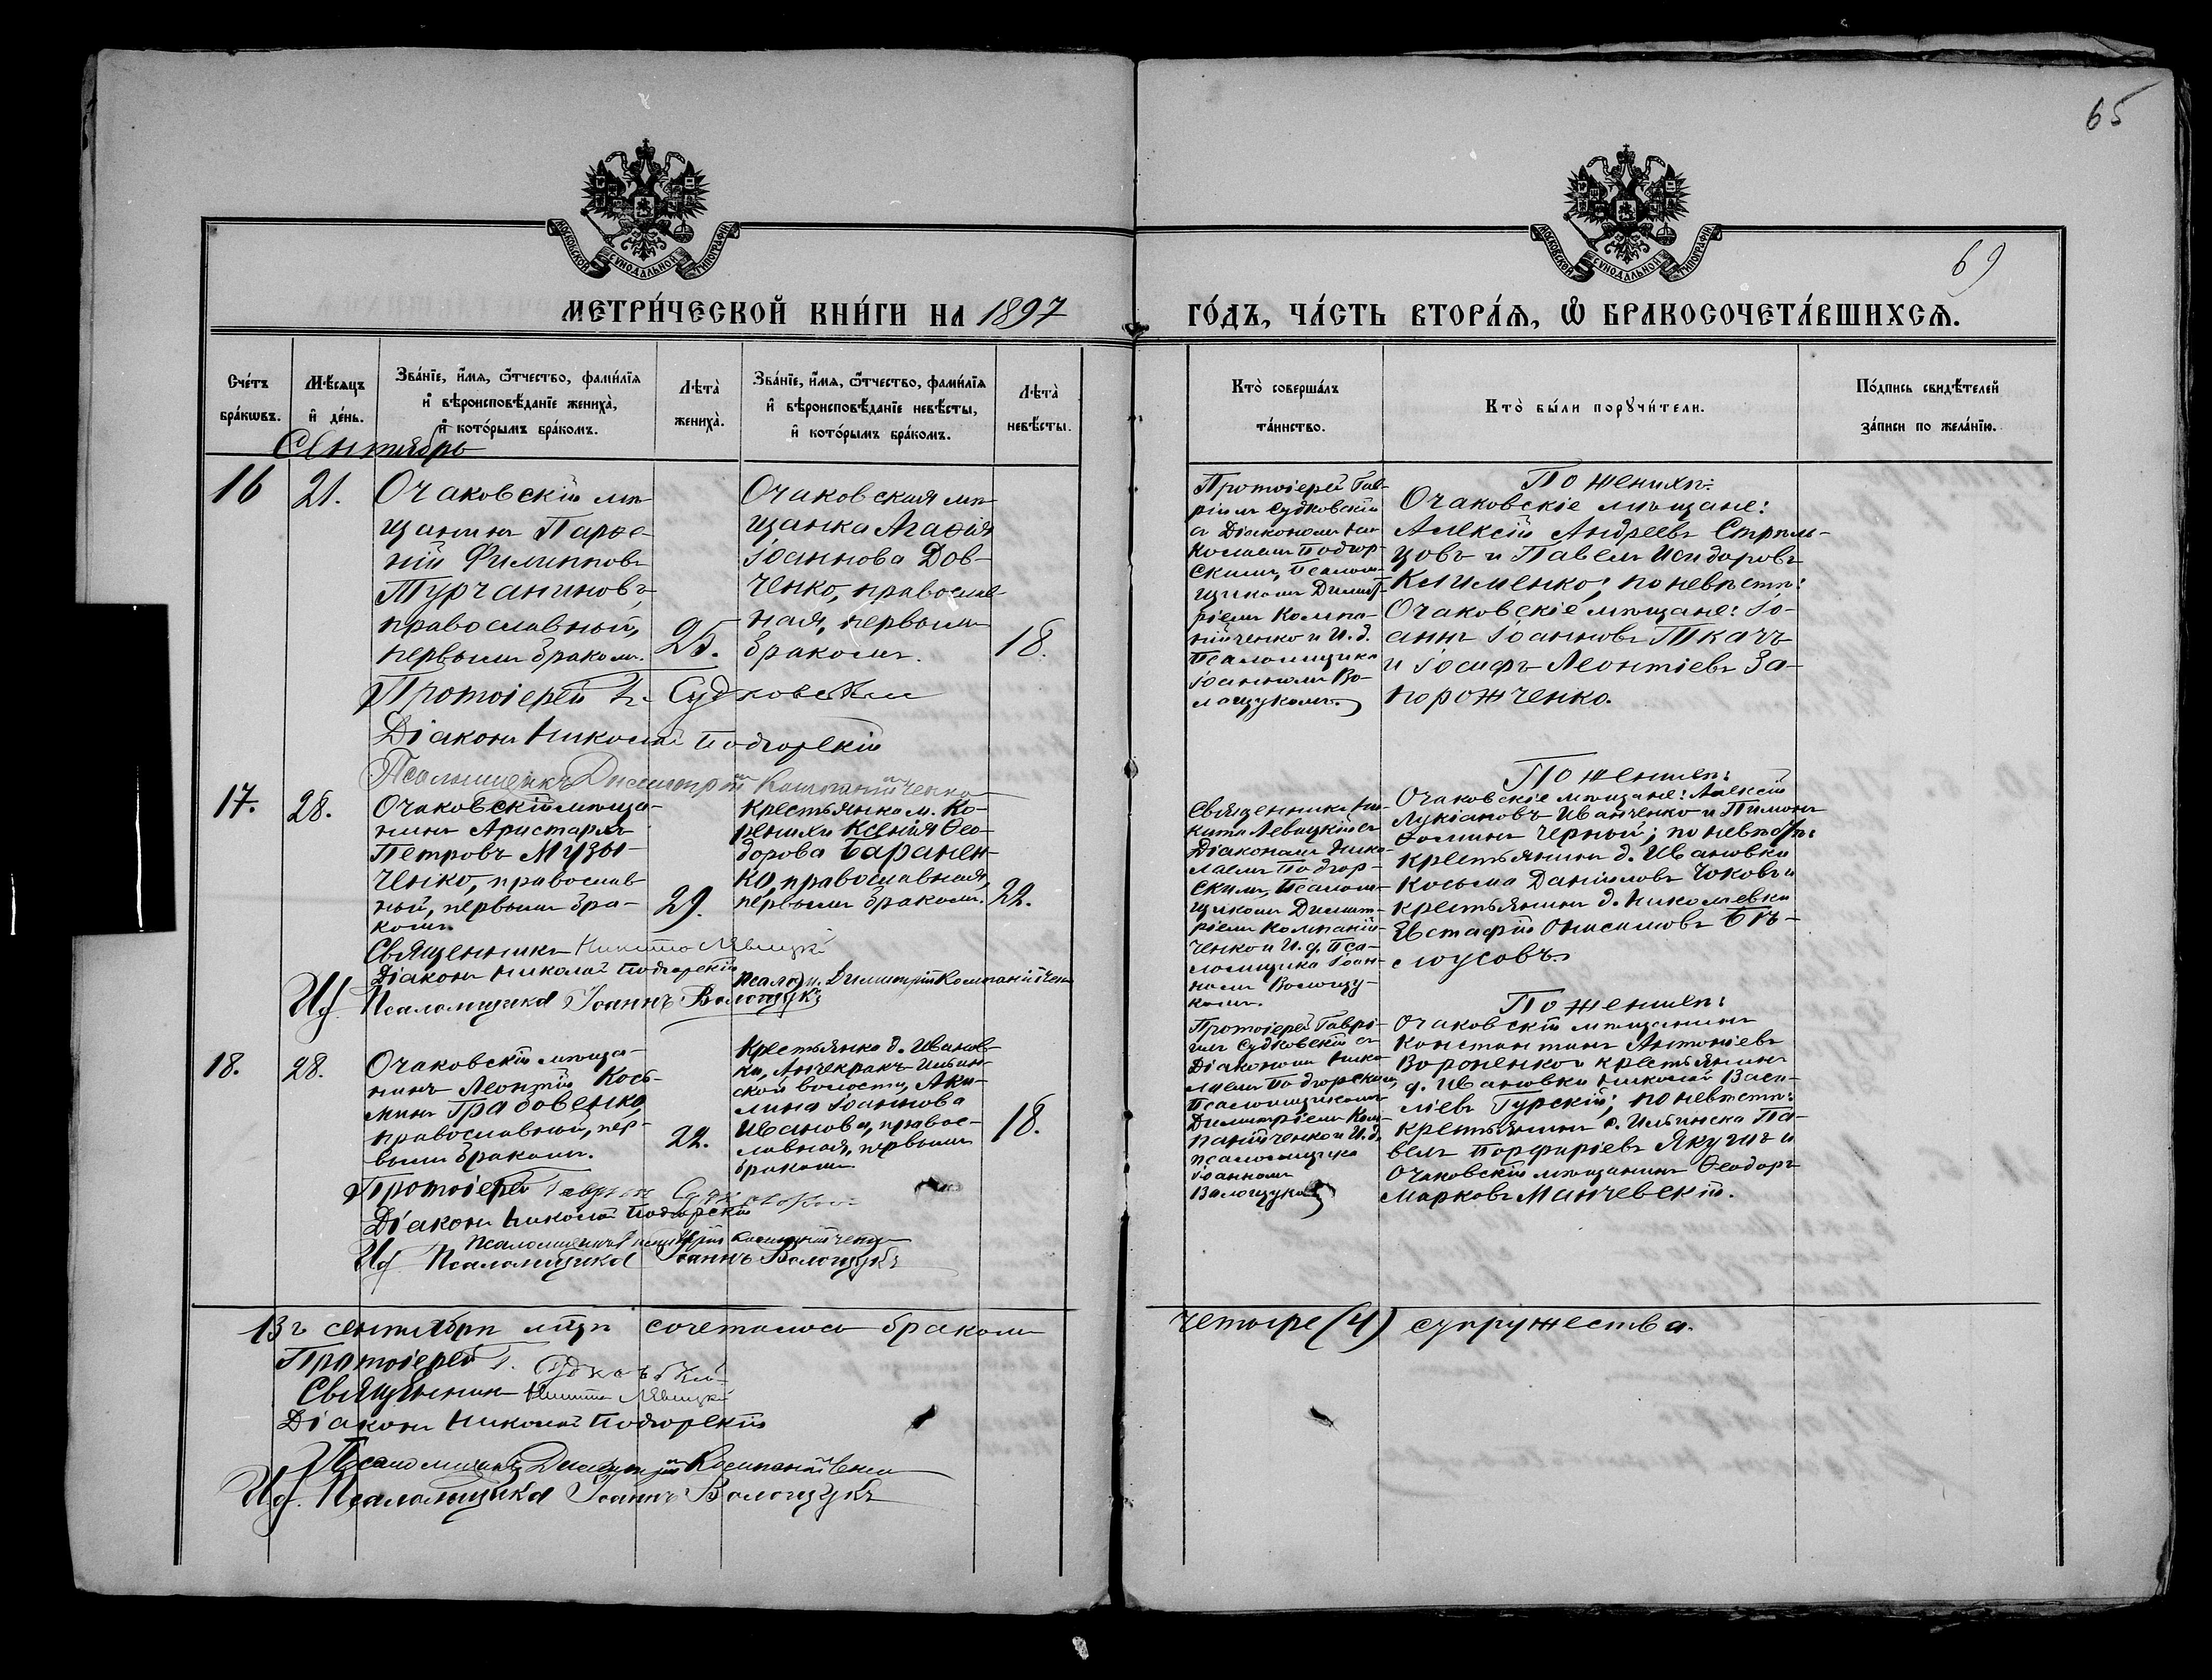 65
69
МОСКОВСКОЙ СѴНОДАЛЬНОЙ ТИПОГРАФІИ
МОСКОВСКОЙ СѴНОДАЛЬНОЙ ТИПОГРАФІИ
МЕТРИ́ЧЕСКОЙ КНИ́ГИ НА 1897
ГО́ДЪ, ЧА́СТЬ ВТОРА́Ѧ, Ѡ҆ БРАКОСОЧЕТА́ВШИХСѦ.
Сче́тъ
бра́кѡвъ.
Мѣ́сяцъ
и҆ де́нь.
Зва́нїе, и҆́мя, ѻ҆́тчество, фами́лїя
и҆ вѣроисповѣ́данїе жениха̀,
и҆ кото́рымъ бра́комъ.
Лѣта̀
жениха̀.
Зва́нїе, и҆́мя, ѻ҆́тчество, фами́лїя
и҆ вѣроисповѣ́данїе невѣ́сты,
и҆ кото́рымъ бра́комъ.
Лѣта̀
невѣ́сты.
Кто̀ соверша́лъ
та́инство.
Кто̀ бы́ли порꙋчи́тели.
По́дпись свидѣ́телей
за́писи по жела́нїю.
Сентябрь
16
21.
Очаковскій мѣ-
щанинъ Парѳе-
ній Филипповъ
Турчаниновъ,
православный,
первымъ бракомъ.
25.
Очаковская мѣ-
щанка Агаѳія
Іоаннова Дов-
ченко, православ-
ная, первымъ
бракомъ.
18.
Протоіерей Гав-
ріилъ Судковскій
съ Діакономъ Ни-
колаемъ Подгор-
скимъ, Псалом-
щикомъ Димит-
ріемъ Компа-
нійченко и И. д.
Псаломщика
Іоанномъ Во-
лощукомъ.
По женихѣ:
Очаковскіе мѣщане:
Алексій Андреевъ Стрѣль-
цовъ и Павелъ Исидоровъ
Клименко; по невѣстѣ:
Очаковскіе мѣщане: Іо-
аннъ Іоанновъ Ткачъ
и Іосифъ Леонтіевъ За-
порожченко.
Протоіерей Г. Судковскій
Діаконъ Николай Подгорскій
Псаломщикъ Димитрій Компанійченко
17.
28.
Очаковскій мѣща-
нинъ Аристархъ
Петровъ Музы-
ченко, православ-
ный, первымъ бра-
комъ.
29.
Крестьянка м. Ко-
ренихи Ксенія Ѳео-
дорова Баранен-
ко, православная,
первымъ бракомъ.
22.
Священникъ Ни-
кита Левицкій съ
Діакономъ Нико-
лаемъ Подгор-
скимъ, Псалом-
щикомъ Димит-
ріемъ Компаній-
ченко и И. д. Пса-
ломщика Іоан-
номъ Волощу-
комъ.
По женихѣ:
Очаковскіе мѣщане: Алексій
Лукіановъ Иванченко и Пимонъ
Ѳоминъ Черный; по невѣстѣ:
крестьянинъ д. Ивановки
Косьма Даніиловъ Чоковъ и
крестьянинъ д. Николаевки
Евстафій Онисимовъ Бѣ-
лоусовъ.
Священникъ Никита Левицкій
Діаконъ Николай Подгорскій
Псалом. Димитрій Компанійченко
Иd. Псаломщика Іоаннъ Волощукъ
18.
28.
Очаковскій мѣща-
нинъ Леонтій Кось-
минъ Грабовенко,
православный, пер-
вымъ бракомъ.
22.
Крестьянка д. Иванов-
ки, Анчекракъ-Ильин-
ской волости, Аки-
лина Іоаннова
Иванова, правос-
лавная, первымъ
бракомъ.
18.
Протоіерей Гаврі-
илъ Судковскій съ
Діакономъ Нико-
лаемъ Подгорскимъ,
Псаломщикомъ
Димитріемъ Ком-
панійченко и И. д.
псаломщика
Іоанномъ
Волощукомъ
По женихѣ:
Очаковскій мѣщанинъ
Константинъ Антоніевъ
Вороненко и крестьянинъ
д. Ивановки Николай Васи-
ліевъ Гурскій; по невѣстѣ:
крестьянинъ с. Ильинска Па-
велъ Порфиріевъ Якущъ и
Очаковскій мѣщанинъ Ѳеодоръ
Марковъ Манчевскій.
Протоіерей Гавріилъ Судковскій
Діаконъ Николай Подгорскій
Псаломщикъ Димитрій Компанійченко
Иd. Псаломщика Іоаннъ Волощукъ
Въ сентябрѣ мѣсѣ сочеталось бракомъ
четыре (4) супружества.
Протоіерей Г. Судковскій
Священникъ Никита Левицкій
Діаконъ Николай Подгорскій
Псаломщикъ Димитрій Компанійченко
Иd. Псаломщика Іоаннъ Волощукъ